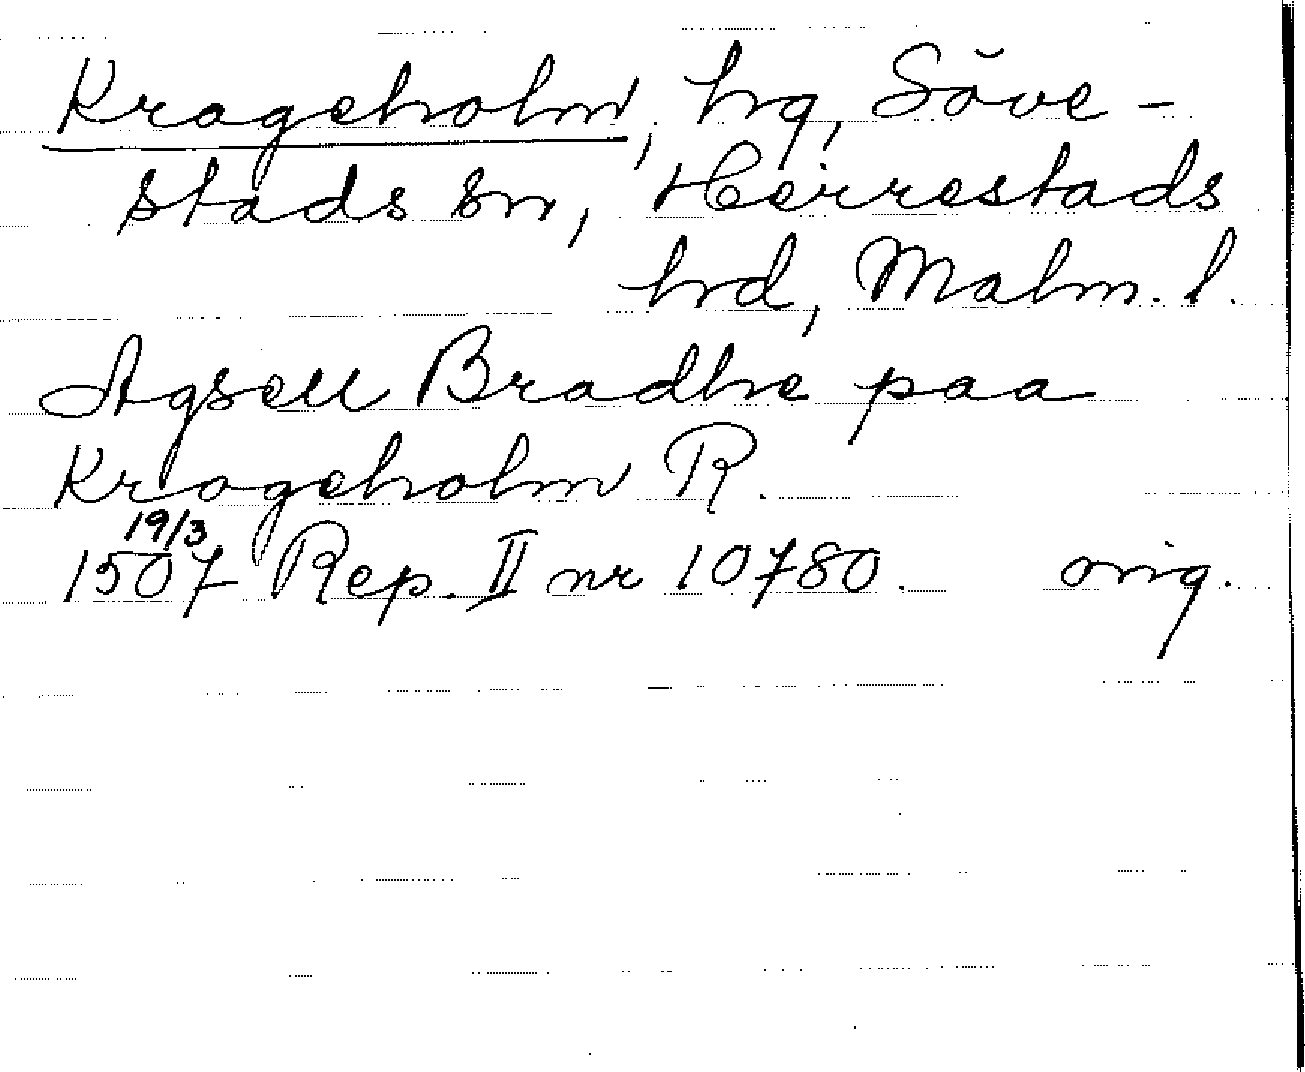 Krageholm, hg, Söve-
stads sn, Herrestads
hrd, Malm. l.
Agsell Bradhe paa
Krageholm R.
19/3
1507 Rep. II nr 10780. orig.